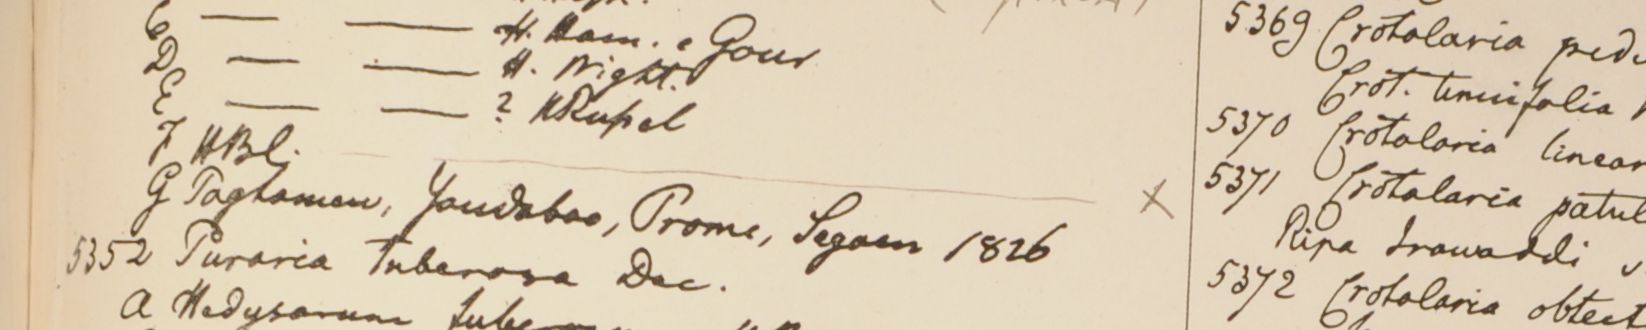 C — — H. Ham. e Gour
D — — H. Wight.
E — — ? HRupel
F HBl.
G Taghamew, Yandaboo, Prome, Segaen 1826
5352 Puraria tuberosa Dec.
a Hedysarum
5369 Crotalaria
Crot. tenuifolia
5370 Crotalaria linear
5371 Crotalaria patul
Ripa Irawaddi
5372 Crotalaria obtect